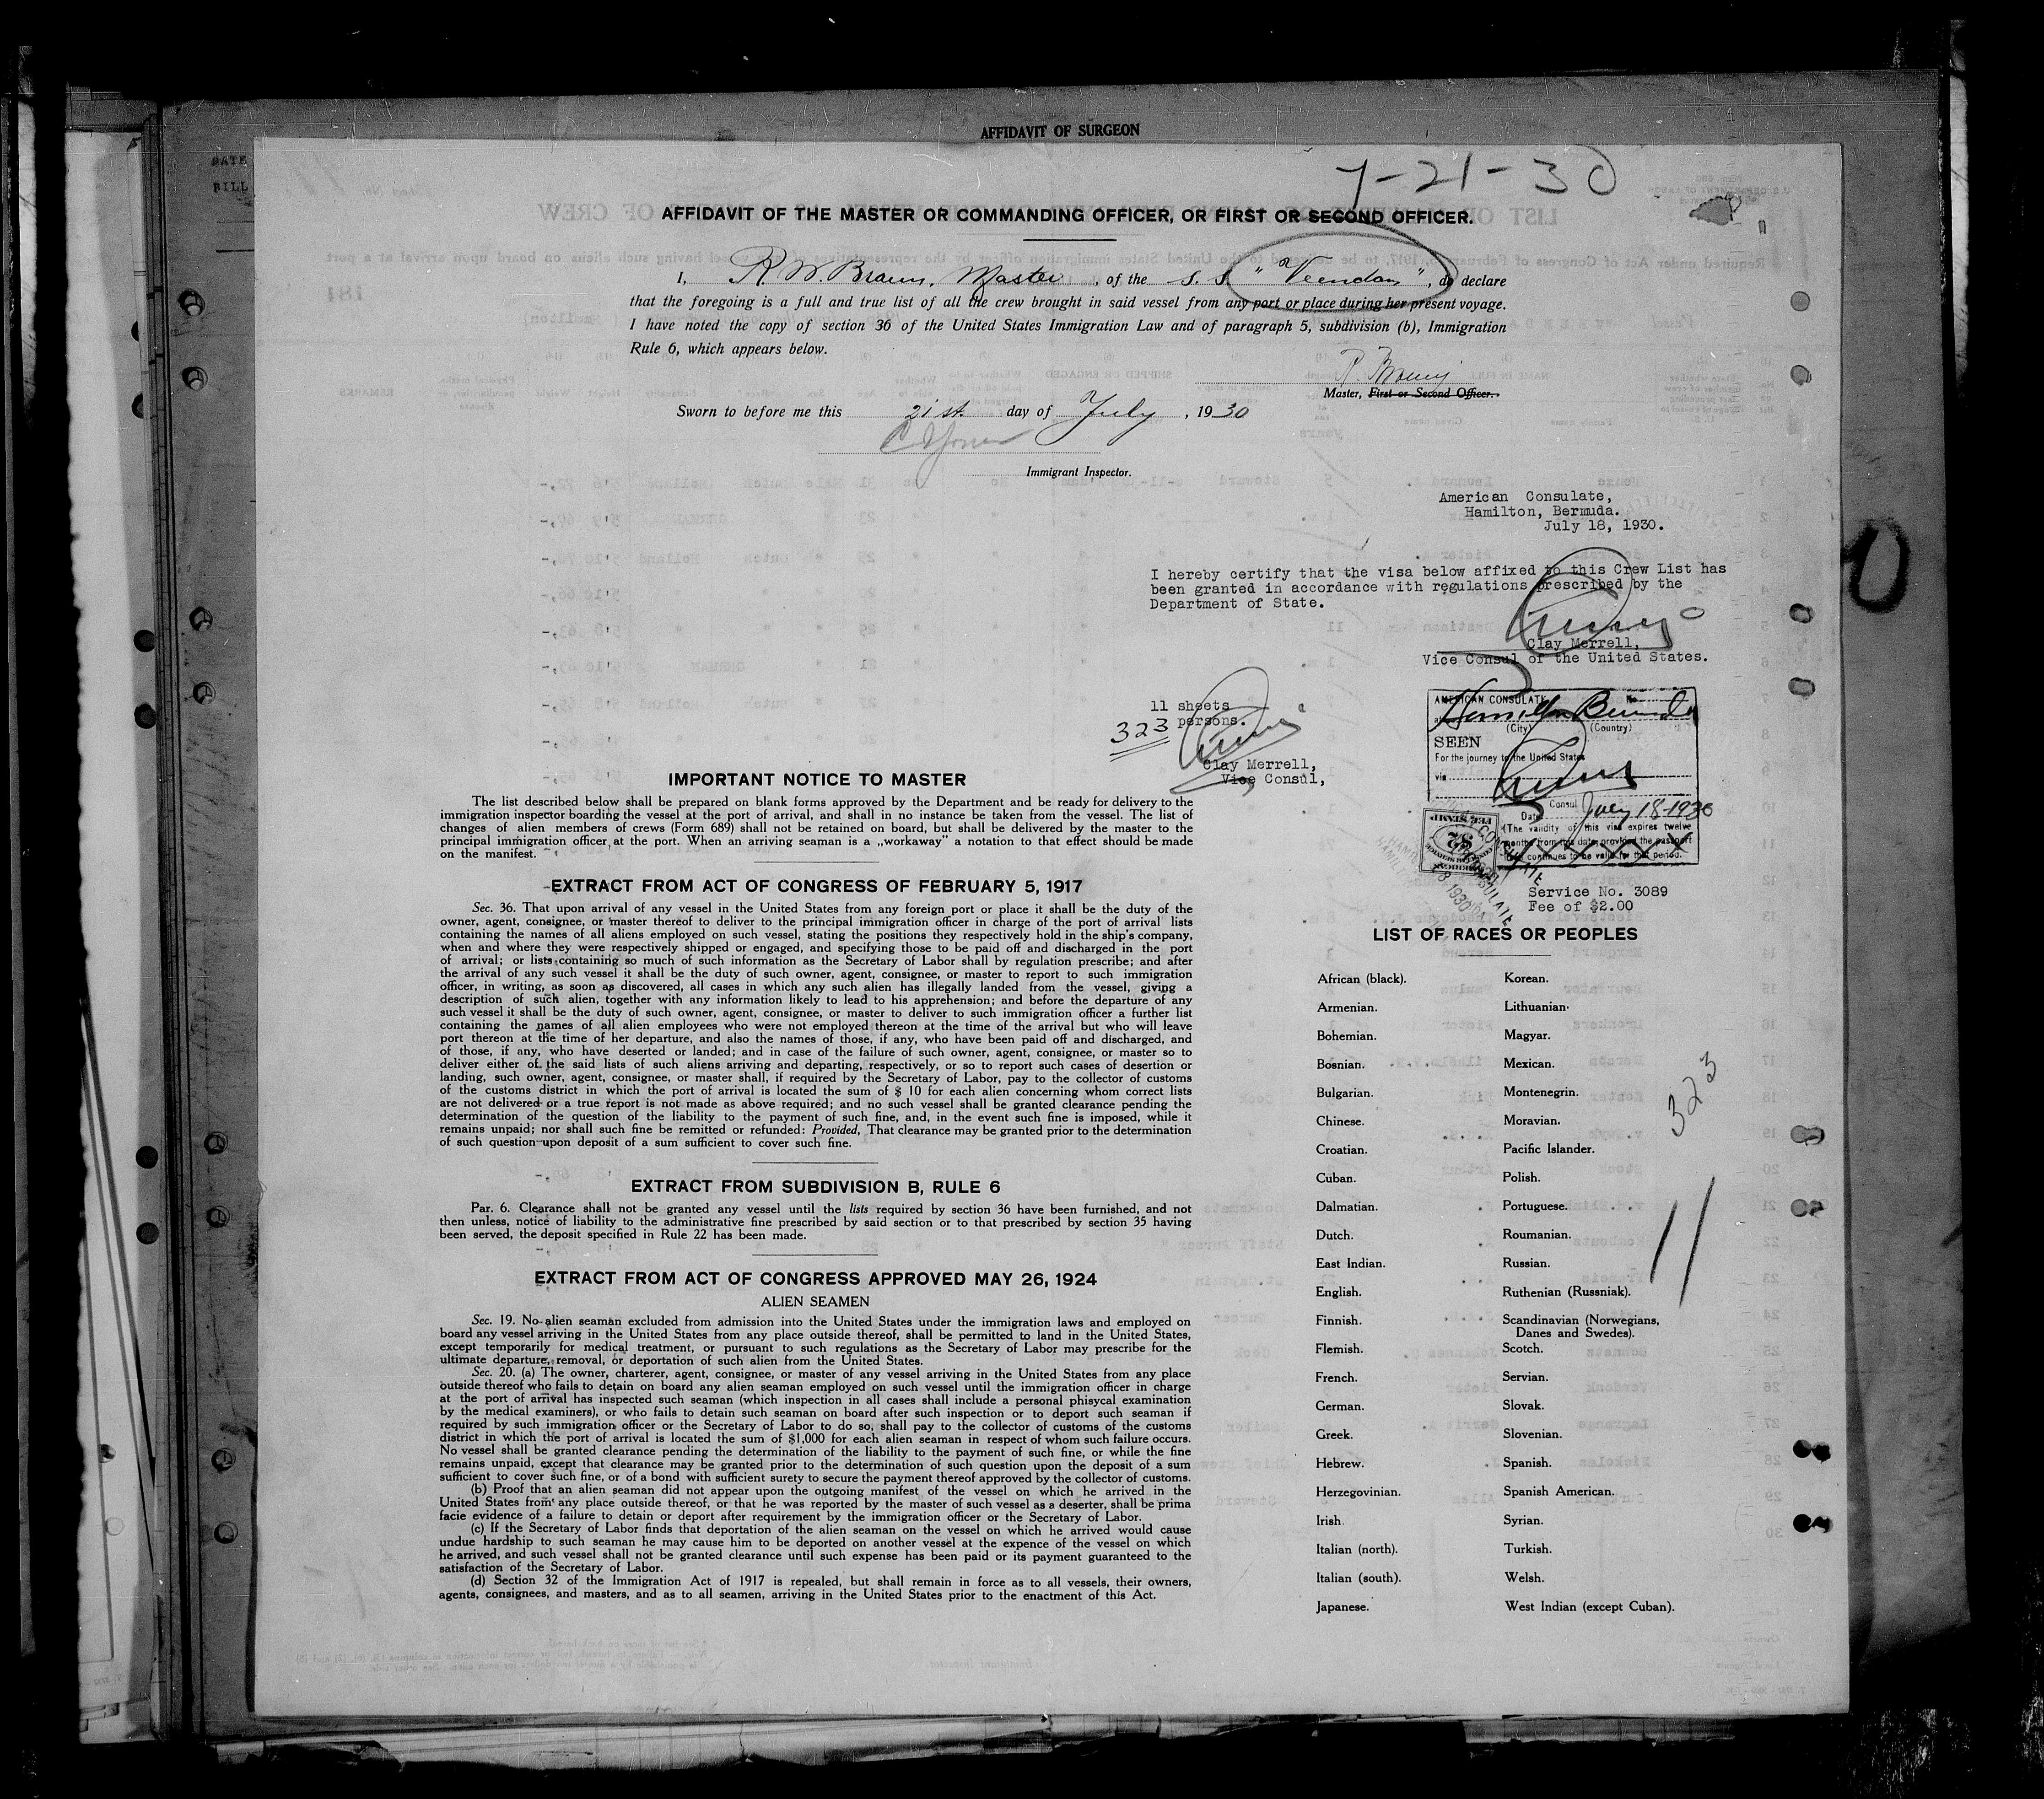 AFFIDAVIT OF SURGEON
DATE
BILL
7-21-30
AFFIDAVIT OF THE MASTER OR COMMANDING OFFICER, OR FIRST OR SECOND OFFICER.
I, R. W. Braun, Master, of the S. S. "Veendam", do declare
that the foregoing is a full and true list of all the crew brought in said vessel from any port or place during her present voyage.
I have noted the copy of section 36 of the United States Immigration Law and of paragraph 5, subdivision (b), Immigration
Rule 6, which appears below.
Master, First or Second Officer.
Sworn to before me this 21st day of July, 1930
Immigrant Inspector.
American Consulate,
Hamilton, Bermuda.
July 18, 1930.
I hereby certify that the visa below affixed to this Crew List has
been granted in accordance with regulations prescribed by the
Department of State.
Clay Merrell,
Vice Consul of the United States.
11 sheets
323 persons.
Clay Merrell,
Vice Consul,
AMERICAN CONSULATE No
at Hamilton Bermuda
(City) (Country)
SEEN
For the journey to the United States
via
Consul
Date July 18-1930
(The validity of this visa expires twelve
months from this date provided the passport
continues to be valid for that period.
FEE STAMP
$2
Service No. 3089
Fee of $2.00
IMPORTANT NOTICE TO MASTER
The list described below shall be prepared on blank forms approved by the Department and be ready for delivery to the
immigration inspector boarding the vessel at the port of arrival, and shall in no instance be taken from the vessel. The list of
changes of alien members of crews (Form 689) shall not be retained on board, but shall be delivered by the master to the
principal immigration officer at the port. When an arriving seaman is a „workaway” a notation to that effect should be made
on the manifest.
EXTRACT FROM ACT OF CONGRESS OF FEBRUARY 5, 1917
Sec. 36. That upon arrival of any vessel in the United States from any foreign port or place it shall be the duty of the
owner, agent, consignee, or master thereof to deliver to the principal immigration officer in charge of the port of arrival lists
containing the names of all aliens employed on such vessel, stating the positions they respectively hold in the ship's company,
when and where they were respectively shipped or engaged, and specifying those to be paid off and discharged in the port
of arrival; or lists containing so much of such information as the Secretary of Labor shall by regulation prescribe; and after
the arrival of any such vessel it shall be the duty of such owner, agent, consignee, or master to report to such immigration
officer, in writing, as soon as discovered, all cases in which any such alien has illegally landed from the vessel, giving a
description of such alien, together with any information likely to lead to his apprehension; and before the departure of any
such vessel it shall be the duty of such owner, agent, consignee, or master to deliver to such immigration officer a further list
containing the names of all alien employees who were not employed thereon at the time of the arrival but who will leave
port thereon at the time of her departure, and also the names of those, if any, who have been paid off and discharged, and
of those, if any, who have deserted or landed; and in case of the failure of such owner, agent, consignee, or master so to
deliver either of the said lists of such aliens arriving and departing, respectively, or so to report such cases of desertion or
landing, such owner, agent, consignee, or master shall, if required by the Secretary of Labor, pay to the collector of customs
of the customs district in which the port of arrival is located the sum of $ 10 for each alien concerning whom correct lists
are not delivered or a true report is not made as above required; and no such vessel shall be granted clearance pending the
determination of the question of the liability to the payment of such fine, and, in the event such fine is imposed, while it
remains unpaid; nor shall such fine be remitted or refunded: Provided, That clearance may be granted prior to the determination
of such question upon deposit of a sum sufficient to cover such fine.
EXTRACT FROM SUBDIVISION B, RULE 6
Par. 6. Clearance shall not be granted any vessel until the lists required by section 36 have been furnished, and not
then unless, notice of liability to the administrative fine prescribed by said section or to that prescribed by section 35 having
been served, the deposit specified in Rule 22 has been made.
EXTRACT FROM ACT OF CONGRESS APPROVED MAY 26, 1924
ALIEN SEAMEN
Sec. 19. No alien seaman excluded from admission into the United States under the immigration laws and employed on
board any vessel arriving in the United States from any place outside thereof, shall be permitted to land in the United States,
except temporarily for medical treatment, or pursuant to such regulations as the Secretary of Labor may prescribe for the
ultimate departure, removal, or deportation of such alien from the United States.
Sec. 20. (a) The owner, charterer, agent, consignee, or master of any vessel arriving in the United States from any place
outside thereof who fails to detain on board any alien seaman employed on such vessel until the immigration officer in charge
at the port of arrival has inspected such seaman (which inspection in all cases shall include a personal phisycal examination
by the medical examiners), or who fails to detain such seaman on board after such inspection or to deport such seaman if
required by such immigration officer or the Secretary of Labor to do so, shall pay to the collector of customs of the customs
district in which the port of arrival is located the sum of $1,000 for each alien seaman in respect of whom such failure occurs.
No vessel shall be granted clearance pending the determination of the liability to the payment of such fine, or while the fine
remains unpaid, except that clearance may be granted prior to the determination of such question upon the deposit of a sum
sufficient to cover such fine, or of a bond with sufficient surety to secure the payment thereof approved by the collector of customs.
(b) Proof that an alien seaman did not appear upon the outgoing manifest of the vessel on which he arrived in the
United States from any place outside thereof, or that he was reported by the master of such vessel as a deserter, shall be prima
facie evidence of a failure to detain or deport after requirement by the immigration officer or the Secretary of Labor.
(c) If the Secretary of Labor finds that deportation of the alien seaman on the vessel on which he arrived would cause
undue hardship to such seaman he may cause him to be deported on another vessel at the expence of the vessel on which
he arrived, and such vessel shall not be granted clearance until such expense has been paid or its payment guaranteed to the
satisfaction of the Secretary of Labor.
(d) Section 32 of the Immigration Act of 1917 is repealed, but shall remain in force as to all vessels, their owners,
agents, consignees, and masters, and as to all seamen, arriving in the United States prior to the enactment of this Act.
LIST OF RACES OR PEOPLES
African (black). Korean.
Armenian. Lithuanian.
Bohemian. Magyar.
Bosnian. Mexican.
Bulgarian. Montenegrin.
Chinese. Moravian.
Croatian. Pacific Islander.
Cuban. Polish.
Dalmatian. Portuguese.
Dutch. Roumanian.
East Indian. Russian.
English. Ruthenian (Russniak).
Finnish. Scandinavian (Norwegians,
Danes and Swedes).
Flemish. Scotch.
French. Servian.
German. Slovak.
Greek. Slovenian.
Hebrew. Spanish.
Herzegovinian. Spanish American.
Irish Syrian.
Italian (north). Turkish.
Italian (south). Welsh.
Japanese. West Indian (except Cuban).
323
11